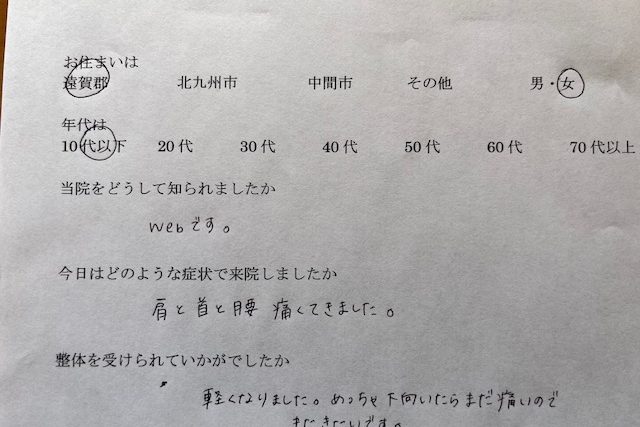 お住まいは
遠賀郡 北九州市 中間市 その他 男・女
年代は
10代以下 20代 30代 40代 50代 60代 70代以上
当院をどうして知られましたか
webです。
今日はどのような症状で来院しましたか
肩と首と腰 痛くてきました。
整体を受けられていかがでしたか
軽くなりました。めっちゃ下向いたらまだ痛いので
またきたいです。